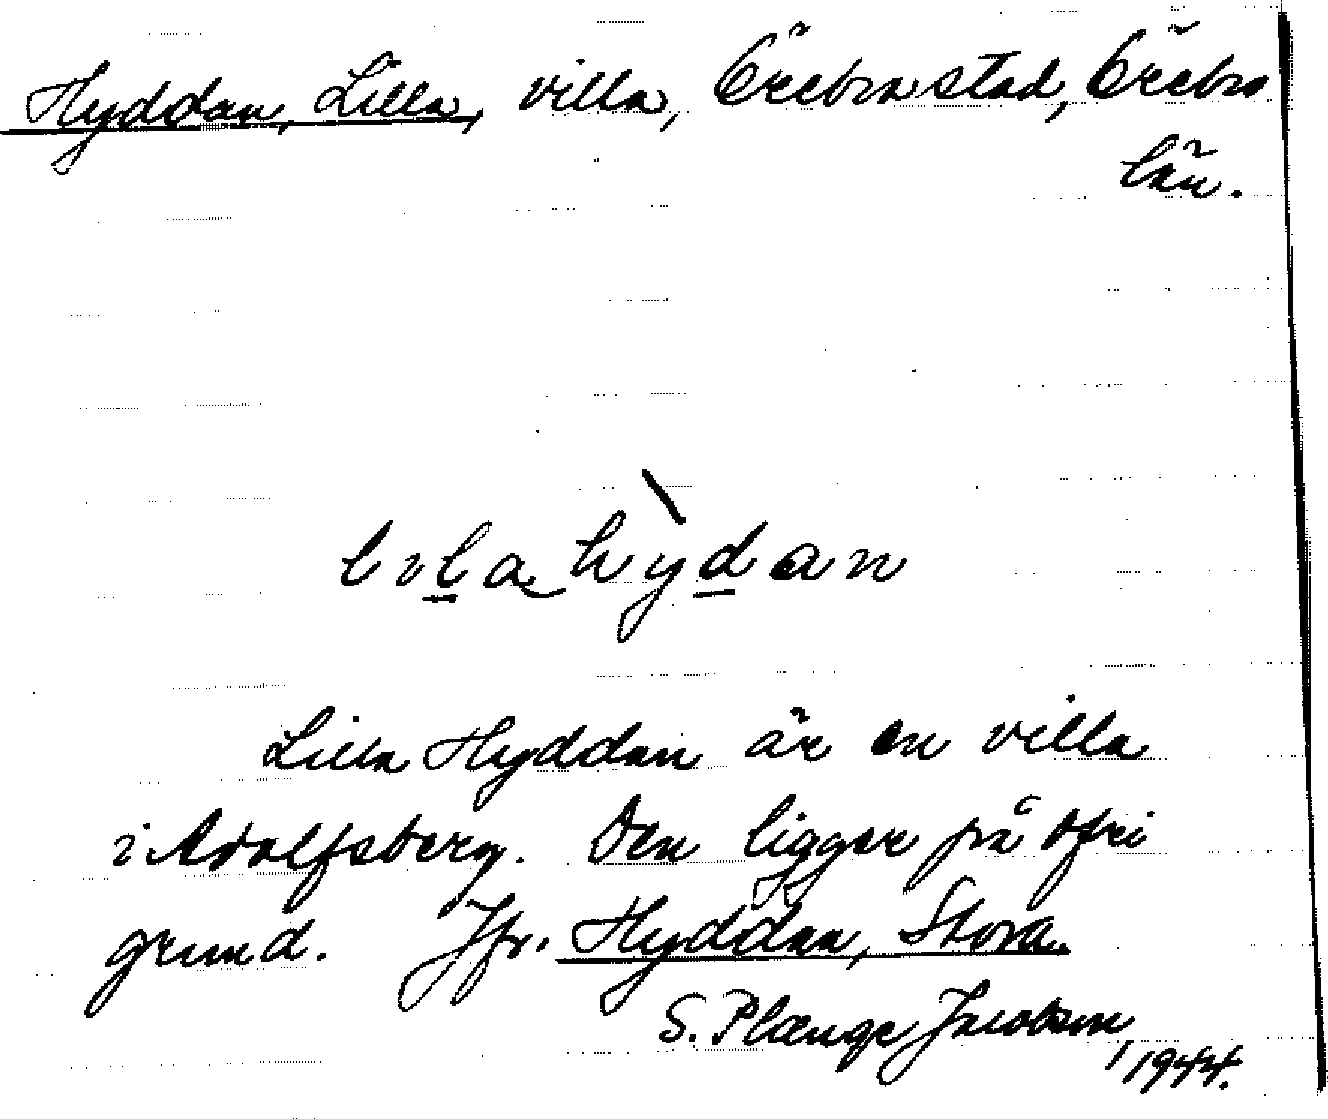 Hyddan, Lilla, villa, Örebro stad, Örebro
län.
lıla hỳdan
Lilla Hyddan är en villa
i Adolfsberg. Den ligger på ofri
grund. Jfr. Hyddan, Stora.
S. Plænge Jacobson,
1944.